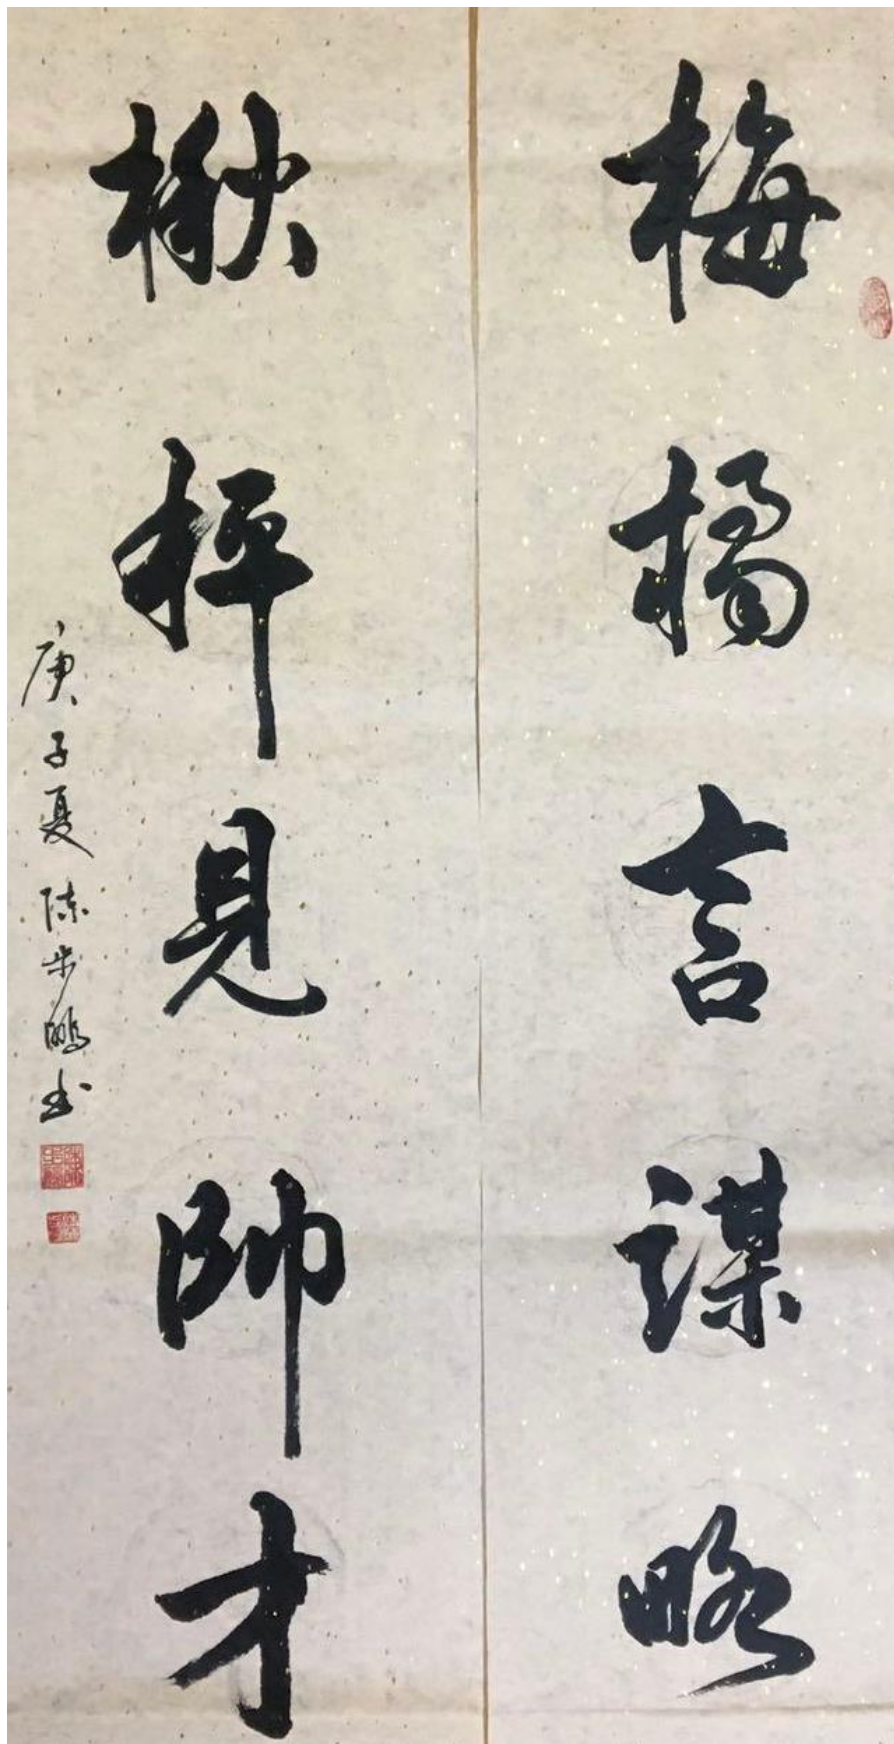 梅橘言謀略
楸枰見帥才
庚子夏 陳步鵬書